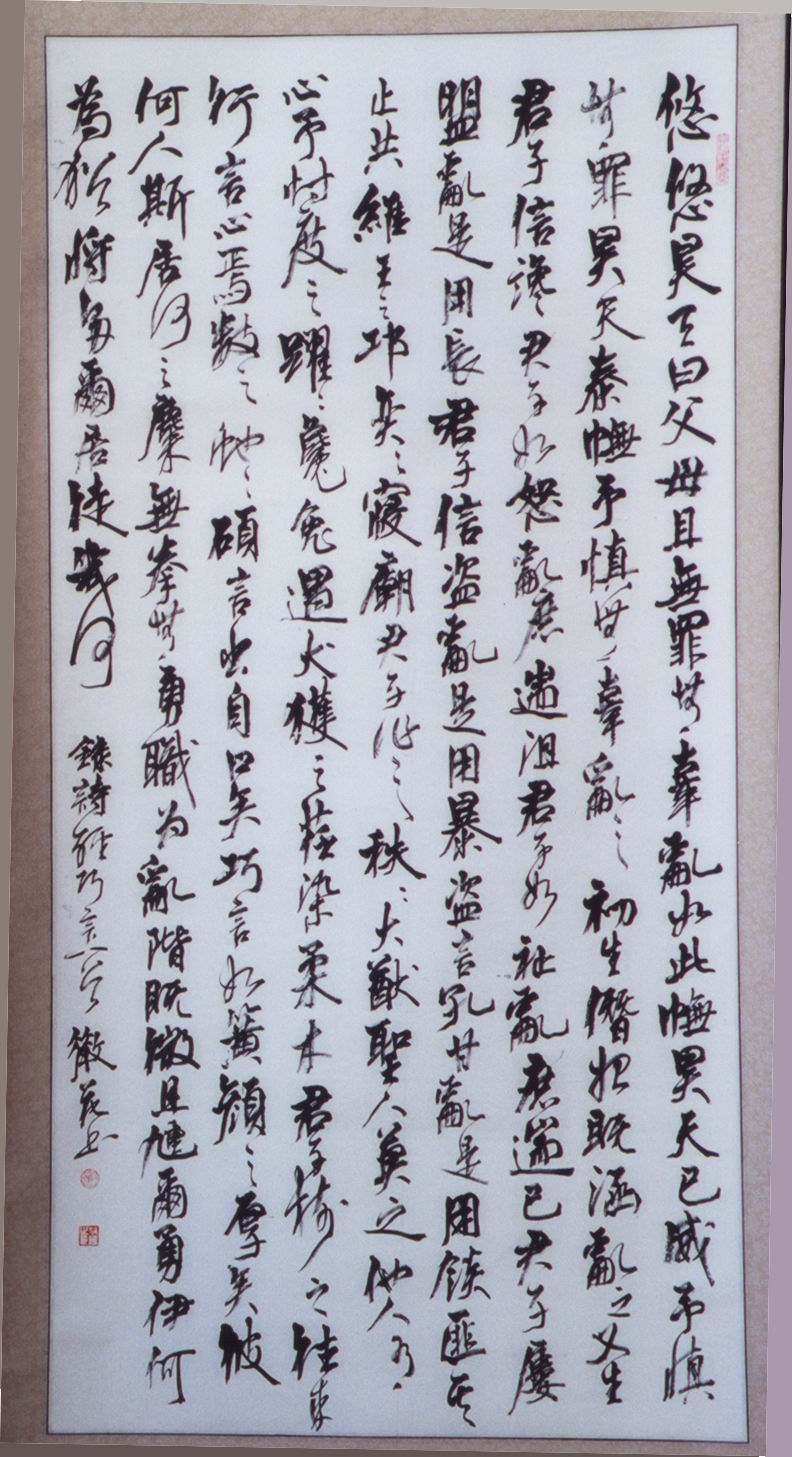 悠悠昊天曰父母且無罪無辜亂如此幠昊天已威予慎
無罪昊天泰幠予慎無辜亂之初生僭始既涵亂之又生
君子信讒君子如怒亂庶遄沮君子如祉亂庶遄已君子屢
盟亂是用長君子信盗亂是用暴盗言孔甘亂是用餤匪其
止共維王之邛奕奕寢廟君子作之秩秩大猷聖人莫之他人有
心予忖度之躍躍毚兔遇犬獲之荏染柔木君子樹之往來
行言心焉數之蛇蛇碩言出自口矣巧言如簧顏之厚矣彼
何人斯居河之麋無拳無勇職為亂階既微且尰爾勇伊何
為猶將多爾居徒幾何 錄詩經巧言 書